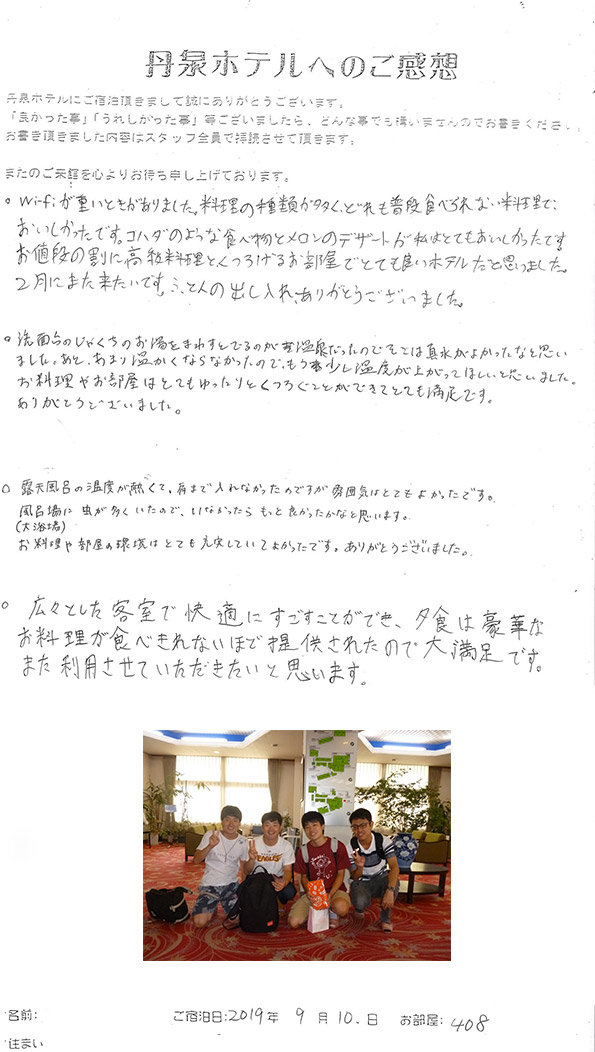 丹泉ホテルへのご感想
丹泉ホテルにご宿泊頂きまして誠にありがとうございます。
「良かった事」「うれしかった事」等ございましたら、どんな事でも構いませんのでお書きください。
お書き頂きました内容はスタッフ全員で拝読させて頂きます。
またのご来館を心よりお待ち申し上げております。
○ Wifiが重いときがありました。料理の種類が多く、どれも普段食べられない料理で、
おいしかったです。コハダのような食べ物とメロンのデザートが私はとてもおいしかったです
お値段の割に高級料理とくつろげるお部屋でとても良いホテルだと思いました。
2月にまた来たいです。ふとんの出し入れ、ありがとうございました。
○ 洗面台のじゃぐちのお湯をまわすとでるのが温泉だったのでそこは真水がよかったなと思い
ました。あと、あまり温かくならなかったので、もう少し温度が上がってほしいと思いました。
お料理やお部屋はとてもゆったりとくつろぐことができてとても満足です。
ありがとうございました。
○ 露天風呂の温度が熱くて、肩まで入れなかったのですが雰囲気はとてもよかったです。
風呂場に虫が多くいたので、いなかったらもっと良かったかなと思います。
(大浴場)
お料理や部屋の環境はとても充実していてよかったです。ありがとうございました。
○ 広々とした客室で快適にすごすことができ、夕食は豪華な
お料理が食べきれないほど提供されたので大満足です。
また利用させていただきたいと思います。
EAGLES
名前:
ご宿泊日:2019年 9月10.日 お部屋:408
住まい